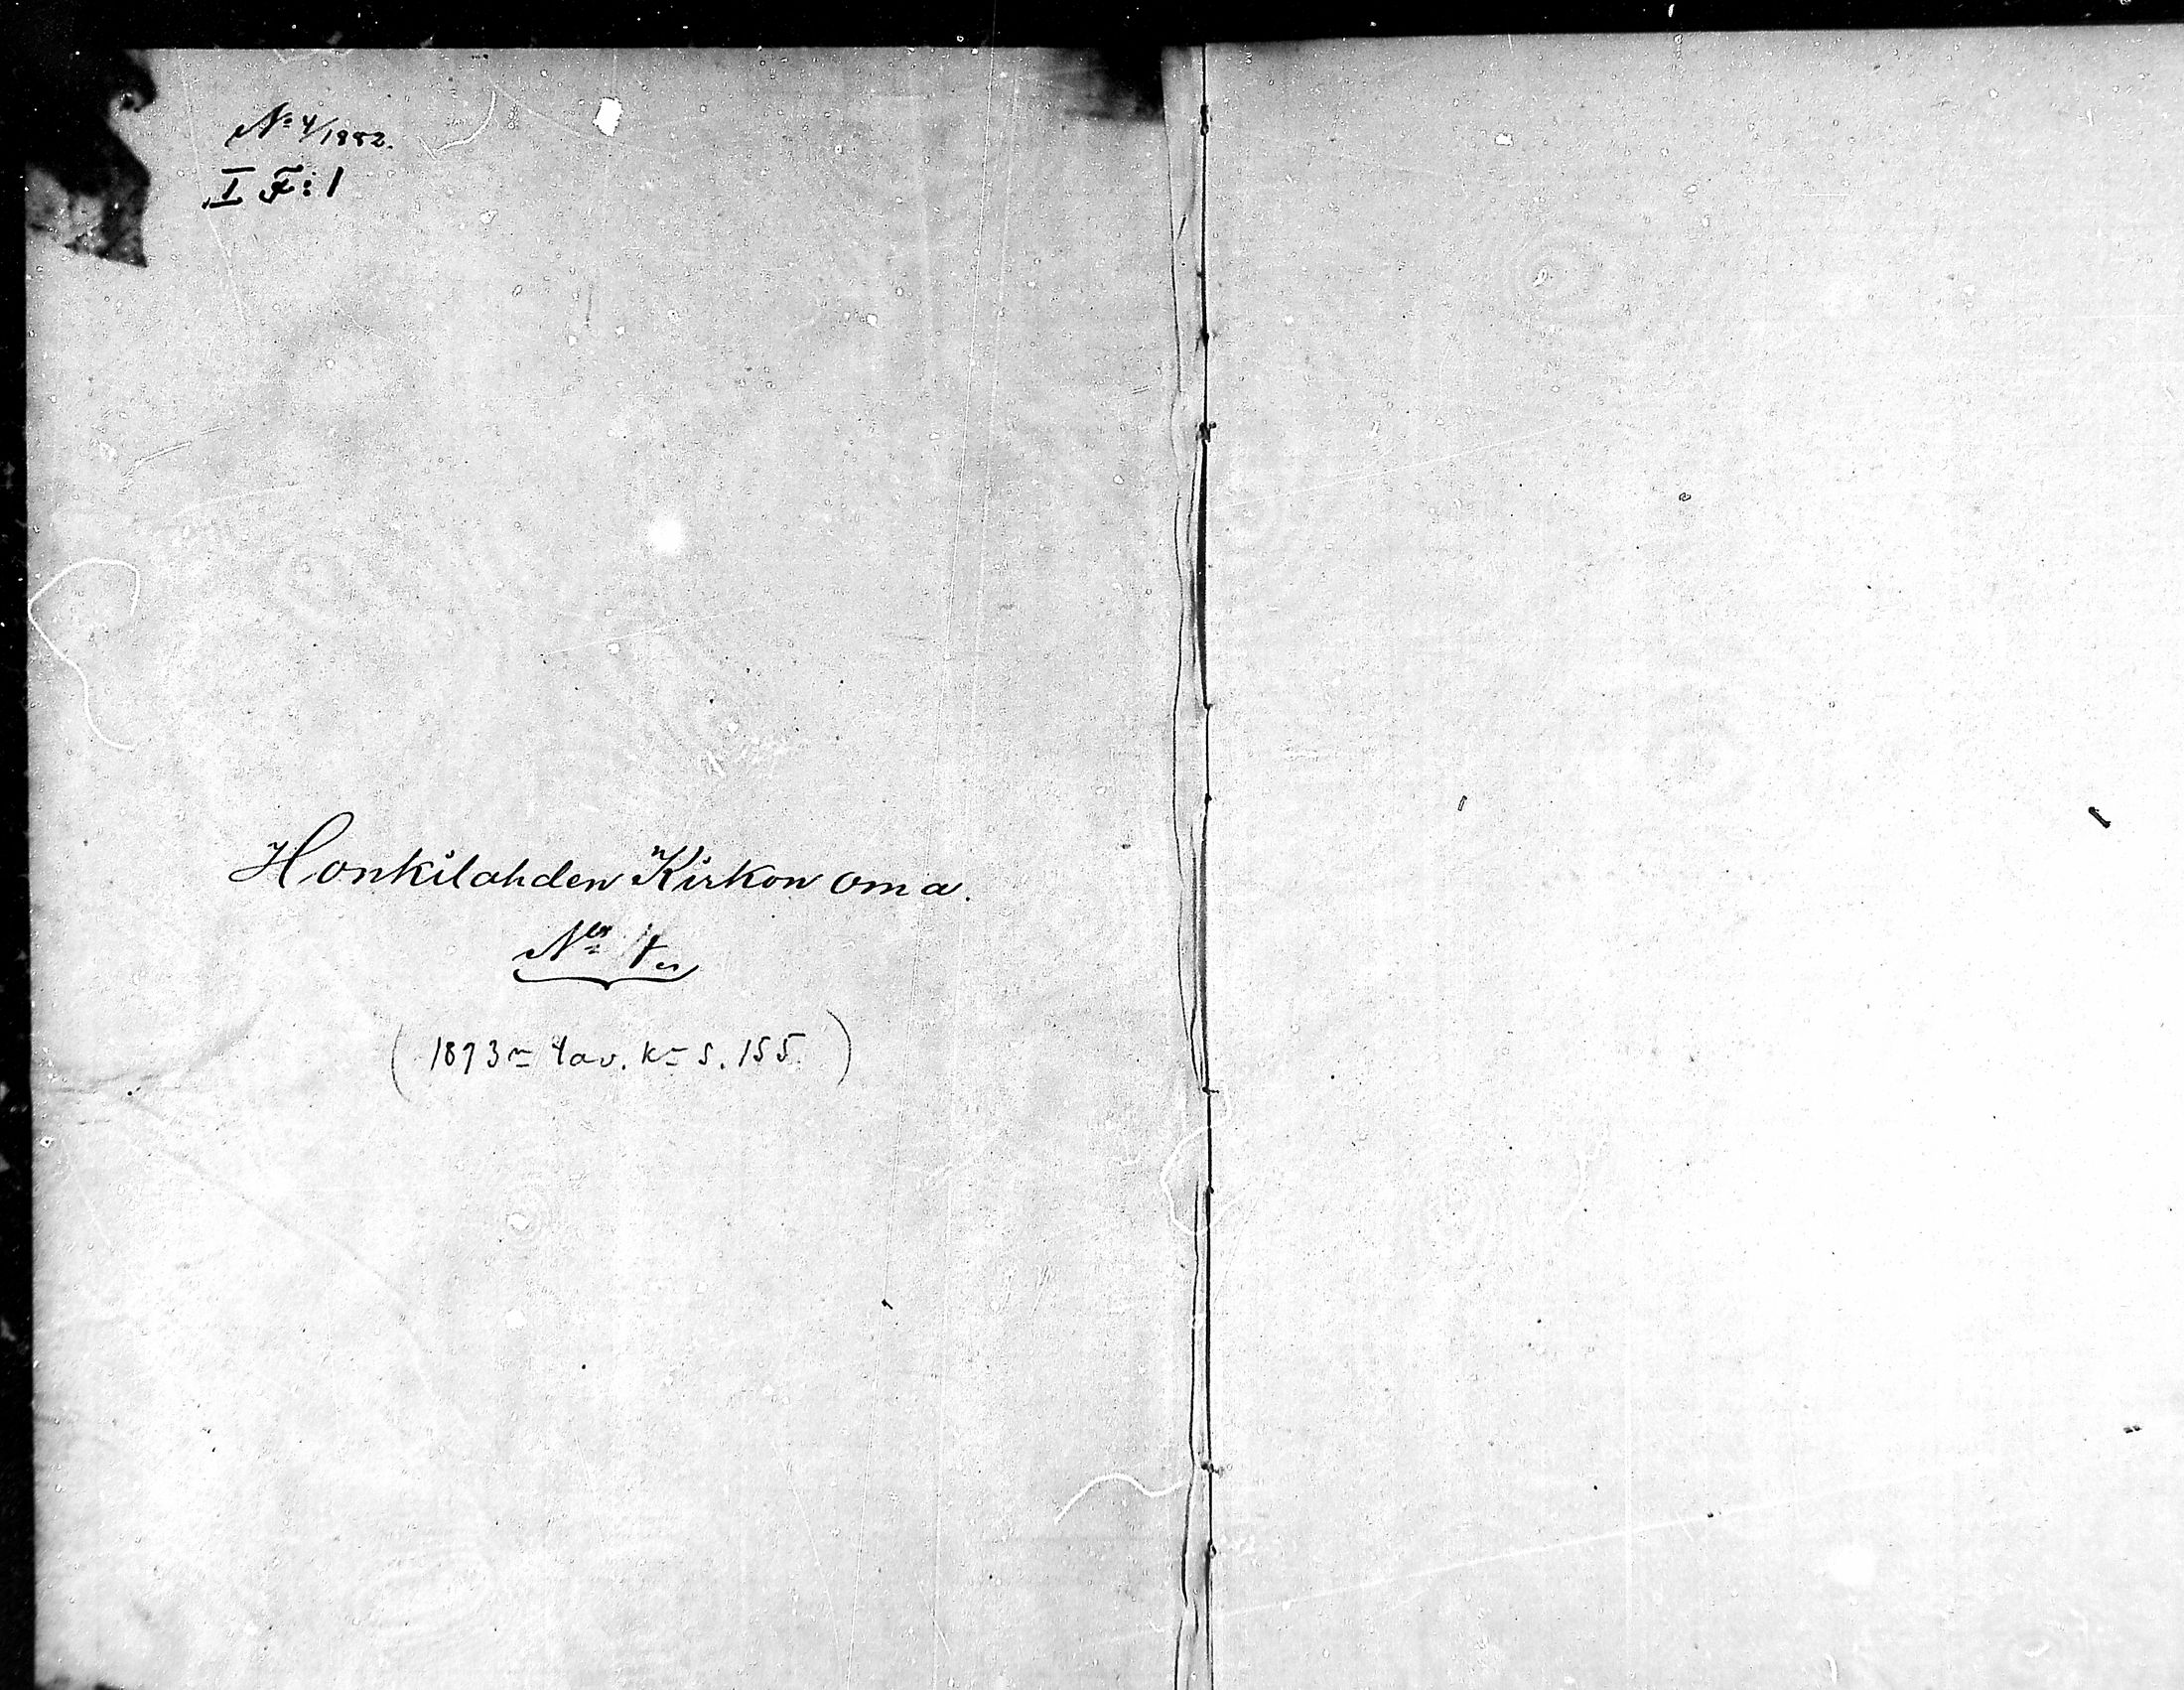 No 4/1882.
I F:1
Honkilahden Kirkon oma.
No 4
(1893n tav. k- s. 155.)